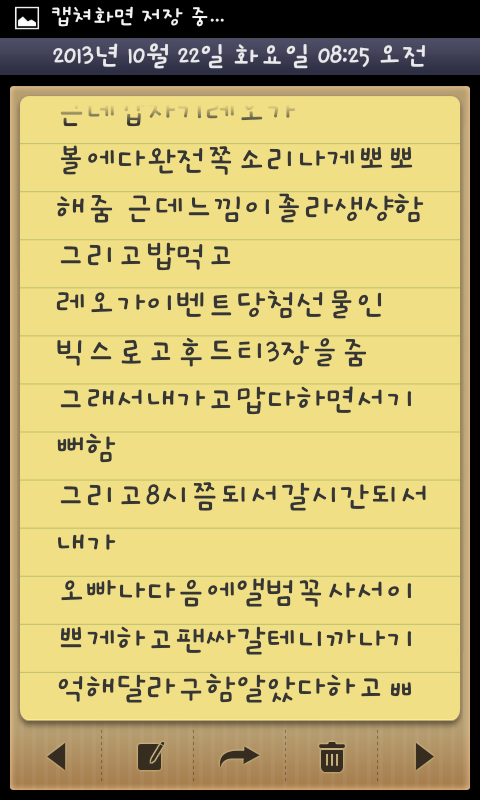 캡쳐화면 저장 중...
2013년 10월 22일 화요일 08:25 오전
근데갑자기레오가
볼에다완전쪽 소리나게뽀뽀
해줌 근데느낌이졸라생생함
그리고밥먹고
레오가이벤트당첨선물인
빅스로고후드티3장을줌
그래서내가고맙다하면서기
뻐함
그리고8시쯤되서갈시간되서
내가
오빠나다음에앨범꼭사서이
쁘게하고팬싸갈테니까나기
억해달라구함알았다하고ㅃ